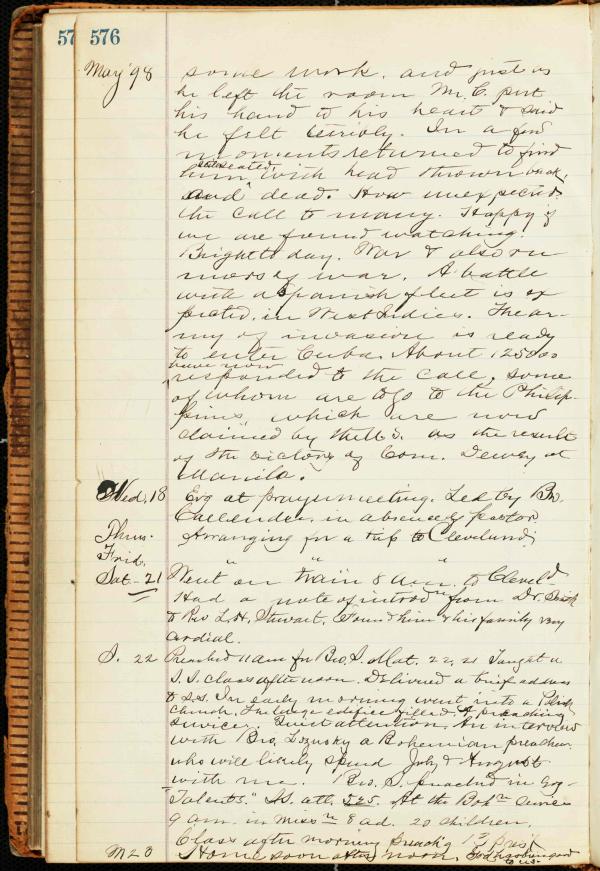 57 576
May '98 some work. and just as
he left the room Mr. C. put
his hand to his heart & said
he felt terribly. In a few
moments returned to find
him seated with head thrown back,
and dead. How unexpected
the call to many. Happy if
we are found watching.
Bright day. War & also ru
mors of war. A battle
with a Spanish fleet is ex
pected, in West Indies. The ar-
my of invasion is ready
to enter Cuba. About 125000
have now
responded to the call, some
of whom are to go to the Philip-
pines, which are now
claimed by the U.S. as the result
of the victory of Com. Dewey at
Manila.
Wed. 18 Evg at prayermeeting. Led by Bro.
Callender, in absence of pastor.
Thurs. Arranging for a trip to Cleveland;
Frid. " " "
Sat - 21 Went on train 8 a.m. to Cleveld
Had a note of introdn from Dr.
to Rev L. H. Stewart. Found him & his family very
cordial.
S. 22 Preached 11 am for Bro. S. Mat. 22, 21 Taught a
S.S. class afternoon. Delivered a brief address
to S.S. In early morning went into a
church. The large edifice filled. A preaching
service. Quiet attention. An interview
with Bro. a Bohemian preacher
who will likely spend July & August
with me. Bro. S. preached in evg -
"Talents." S.S. att. 525. At the Bohn service
9 a.m. in Missn 8 ad. 20 children.
Class after morning preach'g
M 23 Home soon after noon. God
to us.